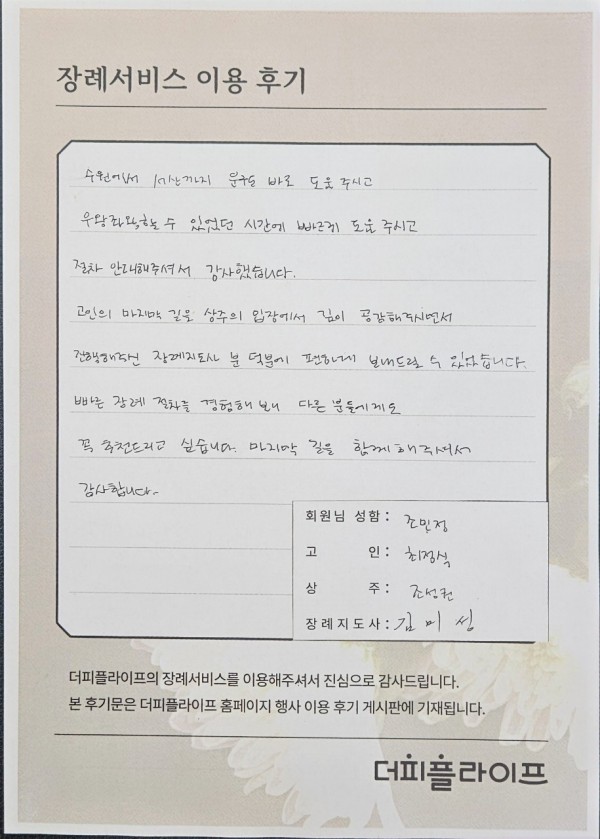 장례서비스 이용 후기
수원에서 서산까지 운구를 바로 도움 주시고
우왕좌왕할 수 있었던 시간에 빠르게 도움 주시고
절차 안내해주셔서 감사했습니다.
고인의 마지막 길을 상주의 입장에서 깊이 공감해주시면서
진행해주신 장례지도사 분 덕분에 편하게 보내드릴 수 있었습니다.
빠른 장례 절차를 경험해 보니 다른 분들에게도
꼭 추천드리고 싶습니다. 마지막 길을 함께해주셔서
감사합니다.
회원님 성함: 조민정
고 인: 최정식
상 주: 조성권
장례지도사: 김미성
더피플라이프의 장례서비스를 이용해주셔서 진심으로 감사드립니다.
본 후기문은 더피플라이프 홈페이지 행사 이용 후기 게시판에 기재됩니다.
더피플라이프